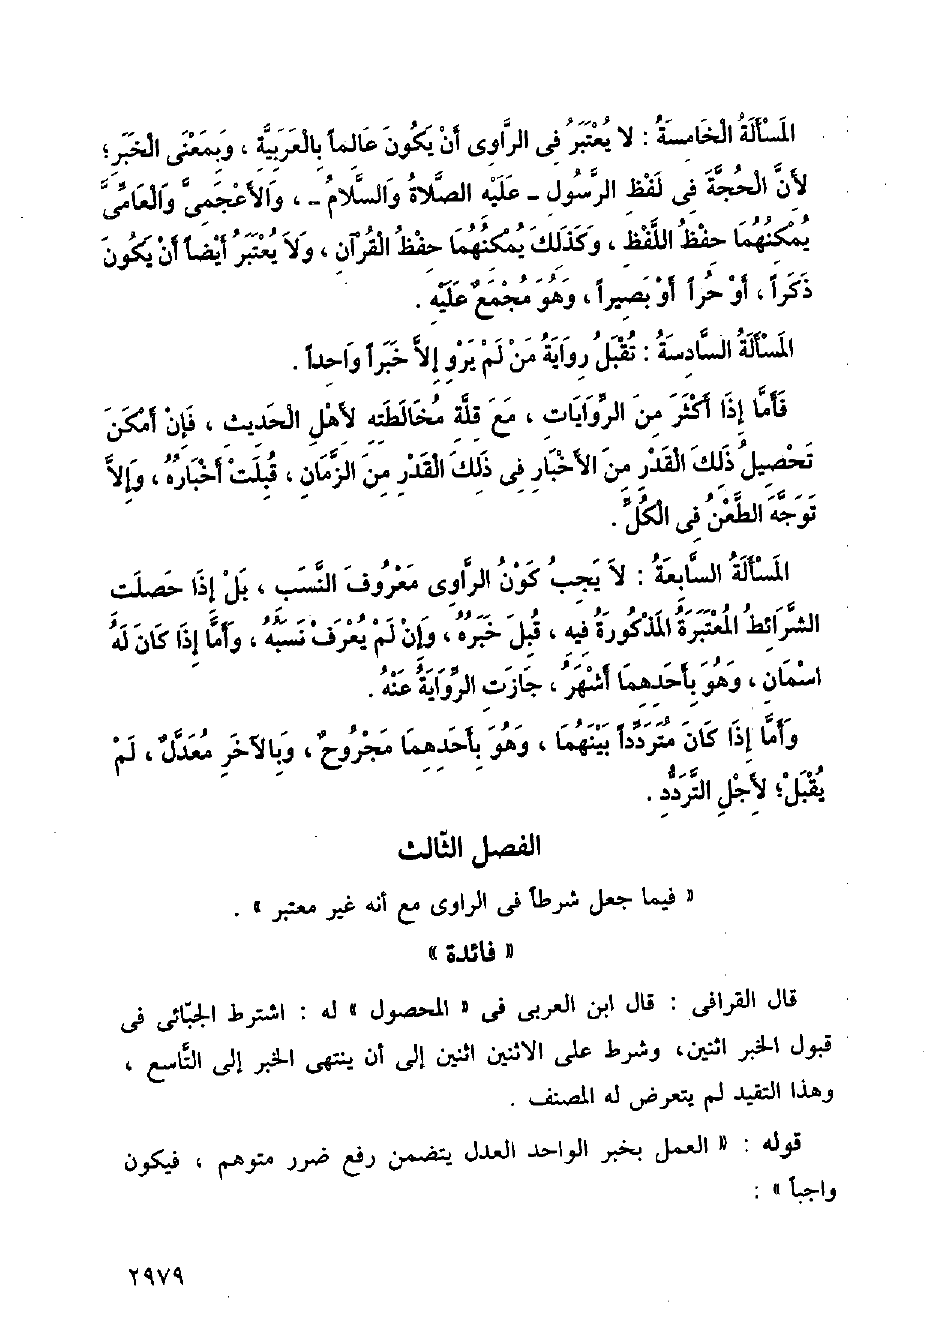 المَسْأَلَةُ الْخَامِسَةُ : لا يُعْتَبَرُ فِى الرَّاوِى أَنْ يَكُونَ عَالِماً بِالْعَرَبِيَّةِ ، وَبِمَعْنَى الْخَبَرِ ؛
لأَنَّ الْحُجَّةَ فِى لَفْظِ الرَّسُولِ ـ عَلَيْهِ الصَّلاَةُ وَالسَّلاَمُ ـ ، وَالأَعْجَمِىُّ وَالْعَامِّىُّ
يُمْكِنُهُمَا حِفْظُ اللَّفْظِ ، وَكَذَلِكَ يُمْكِنُهُمَا حِفْظُ القُرْآنِ ، وَلاَ يُعْتَبَرُ أَيْضاً أَنْ يَكُونَ
ذَكَراً ، أَوْ حُراً أَوْ بَصِيراً ، وَهُوَ مُجْمَعٌ عَلَيْهِ .
المَسْأَلَةُ السَّادِسَةُ : تُقْبَلُ رِوَايَةُ مَنْ لَمْ يَرْوِ إِلاَّ خَبَراً وَاحِداً .
فَأَمَّا إِذَا أَكْثَرَ مِنَ الرِّوَايَاتِ ، مَعَ قِلَّةِ مُخَالَطَتِهِ لأَهْلِ الْحَدِيثِ ، فَإِنْ أَمْكَنَ
تَحْصِيلُ ذَلِكَ القَدْرِ مِنَ الأَخْبَارِ فِى ذَلِكَ القَدْرِ مِنَ الزَّمَانِ ، قُبِلَتْ أَخْبَارُهُ ، وَإِلاَّ
تَوَجَّهَ الطَّعْنُ فِى الْكُلِّ .
المَسْأَلَةُ السَّابِعَةُ : لاَ يَجِبُ كَوْنُ الرَّاوِى مَعْرُوفَ النَّسَبِ ، بَلْ إِذَا حَصَلَتِ
الشَّرَائِطُ المُعْتَبَرَةُ المَذْكُورَةُ فِيهِ ، قُبِلَ خَبَرُهُ ، وَإِنْ لَمْ يُعْرَفْ نَسَبُهُ ، وَأَمَّا إِذَا كَانَ لَهُ
اسْمَانِ ، وَهُوَ بِأَحَدِهِمَا أَشْهَرُ ، جَازَتِ الرِّوَايَةُ عَنْهُ .
وَأَمَّا إِذَا كَانَ مُتَرَدِّداً بَيْنَهُمَا ، وَهُوَ بِأَحَدِهِمَا مَجْرُوحٌ ، وَبِالآخَرِ مُعَدَّلٌ ، لَمْ
يُقْبَلْ ؛ لأَجْلِ التَّرَدُّدِ .
الفصل الثّالث
« فيما جعل شرطاً فى الراوى مع أنه غير معتبر » .
« فائدة »
قال القرافي : قال ابن العربى فى « المحصول » له : اشترط الجبّائى فى
قبول الخبر اثنين، وشرط على الاثنين اثنين إلى أن ينتهى الخبر إلى التَّاسع ،
وهذا التقيد لم يتعرض له المصنف .
قوله : « العمل بخبر الواحد العدل يتضمن رفع ضرر متوهم ، فيكون
واجباً » :
٢٩٧٩